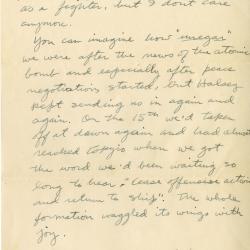 as a fighter, but I don't care
anymore.
You can imagine how "eager"
we were after the news of the atomic
bomb and especially after peace
negotiations started, but Halsey
kept sending us in again and
again. On the 15th we'd taken
off at dawn again and had almost
reached Tokyo when we got
the word we'd been waiting so
long to hear, "Cease offensive action
and return to ship". The whole
formation waggled its wings with
joy.